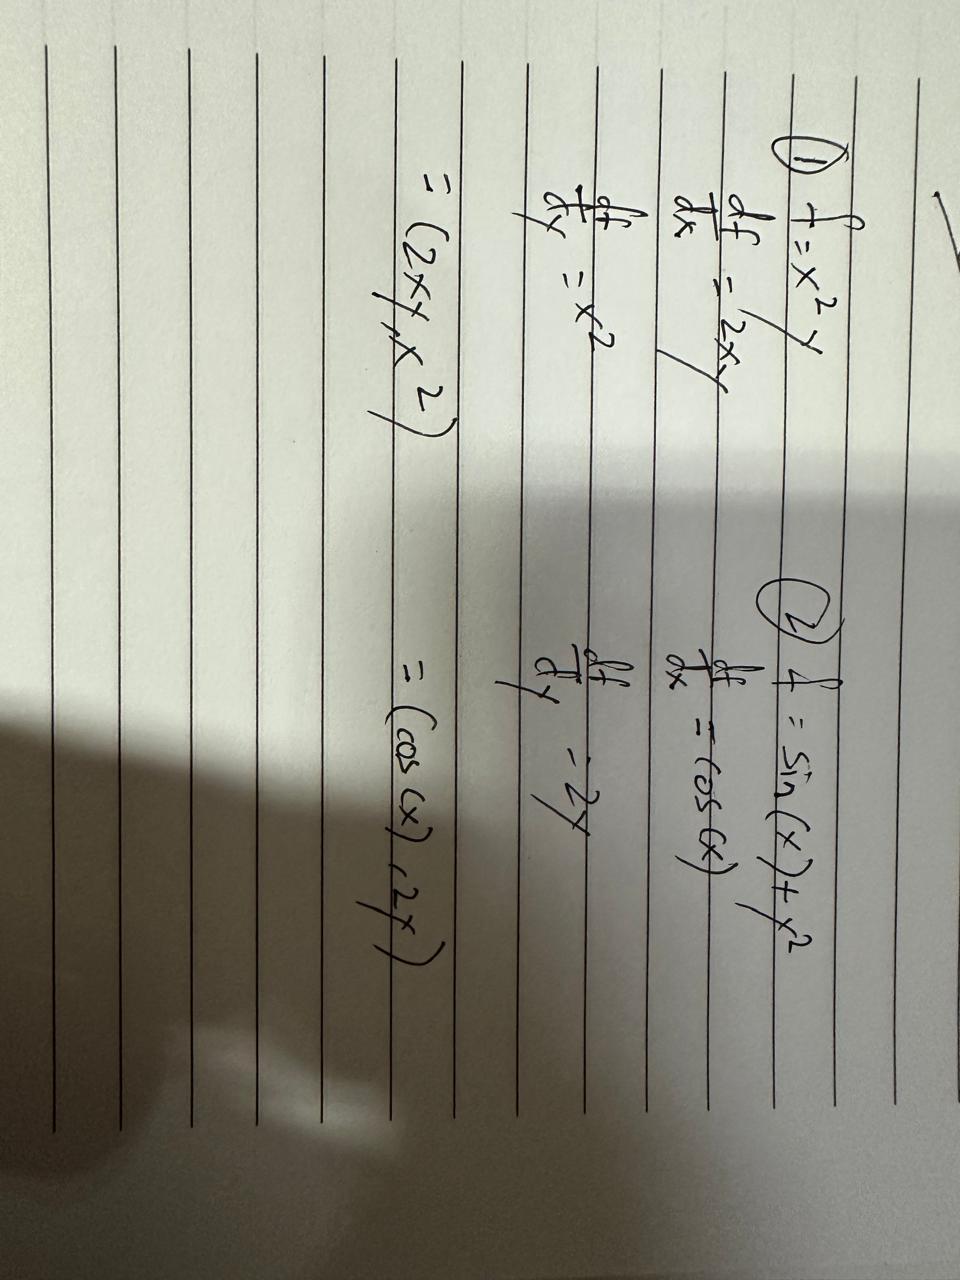 ① f = x² y
df/dx = 2xy
df/dy = x²
= (2xy, x²)
② f = sin(x) + y²
df/dx = cos(x)
df/dy = 2y
= (cos(x), 2y)